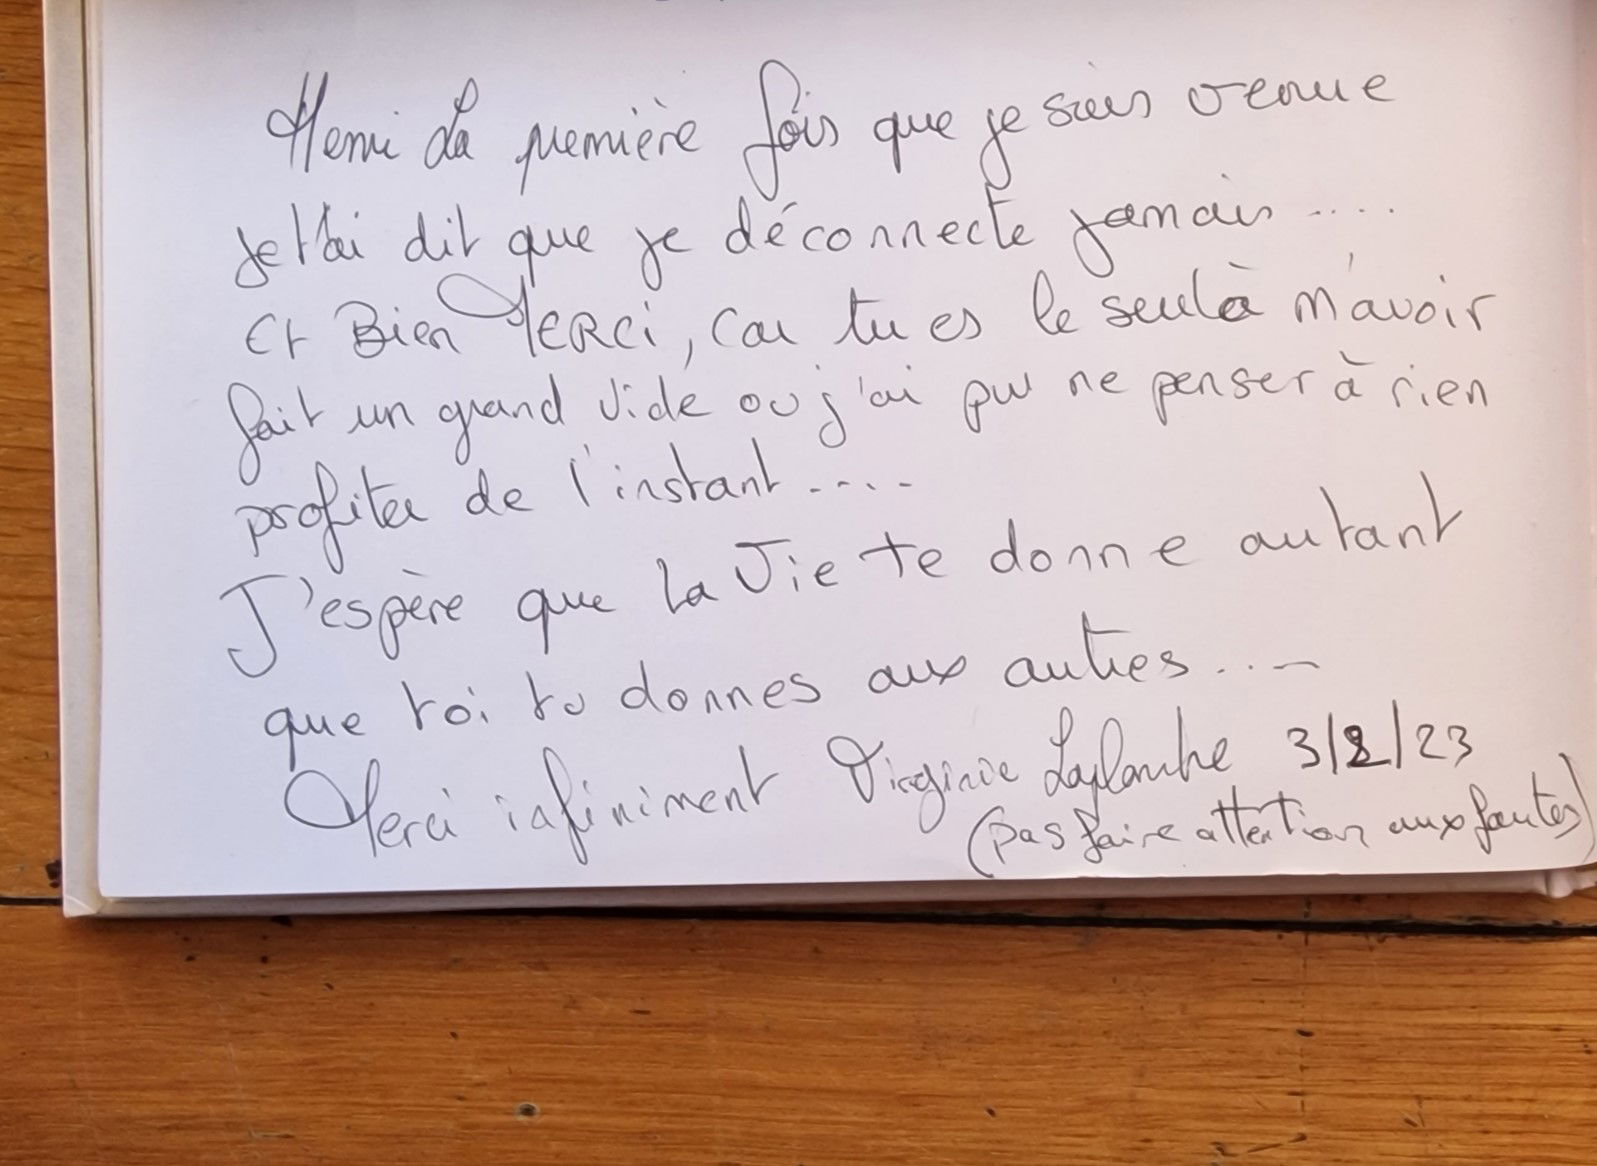 Henri La première fois que je suis venue
je t'ai dit que je déconnecte jamais ....
Et Bien MERCi, car tu es le seul à m'avoir
fait un grand vide ou j'ai pu ne penser à rien
profiter de l'instant ....
J'espère que la Vie te donne autant
que toi tu donnes aux autres ....
Merci infiniment Virginie Laplanche 3/2/23
(pas faire attention aux fautes)